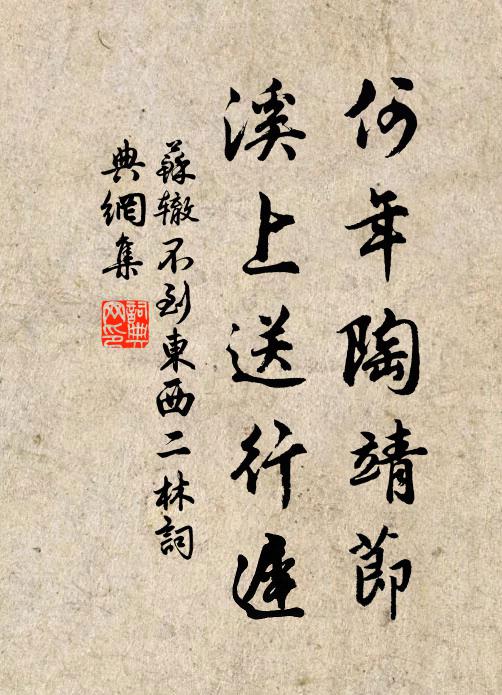 何年陶靖節
溪上送行遲
蘇轍不到東西二林詞
典網集
詞典
网印